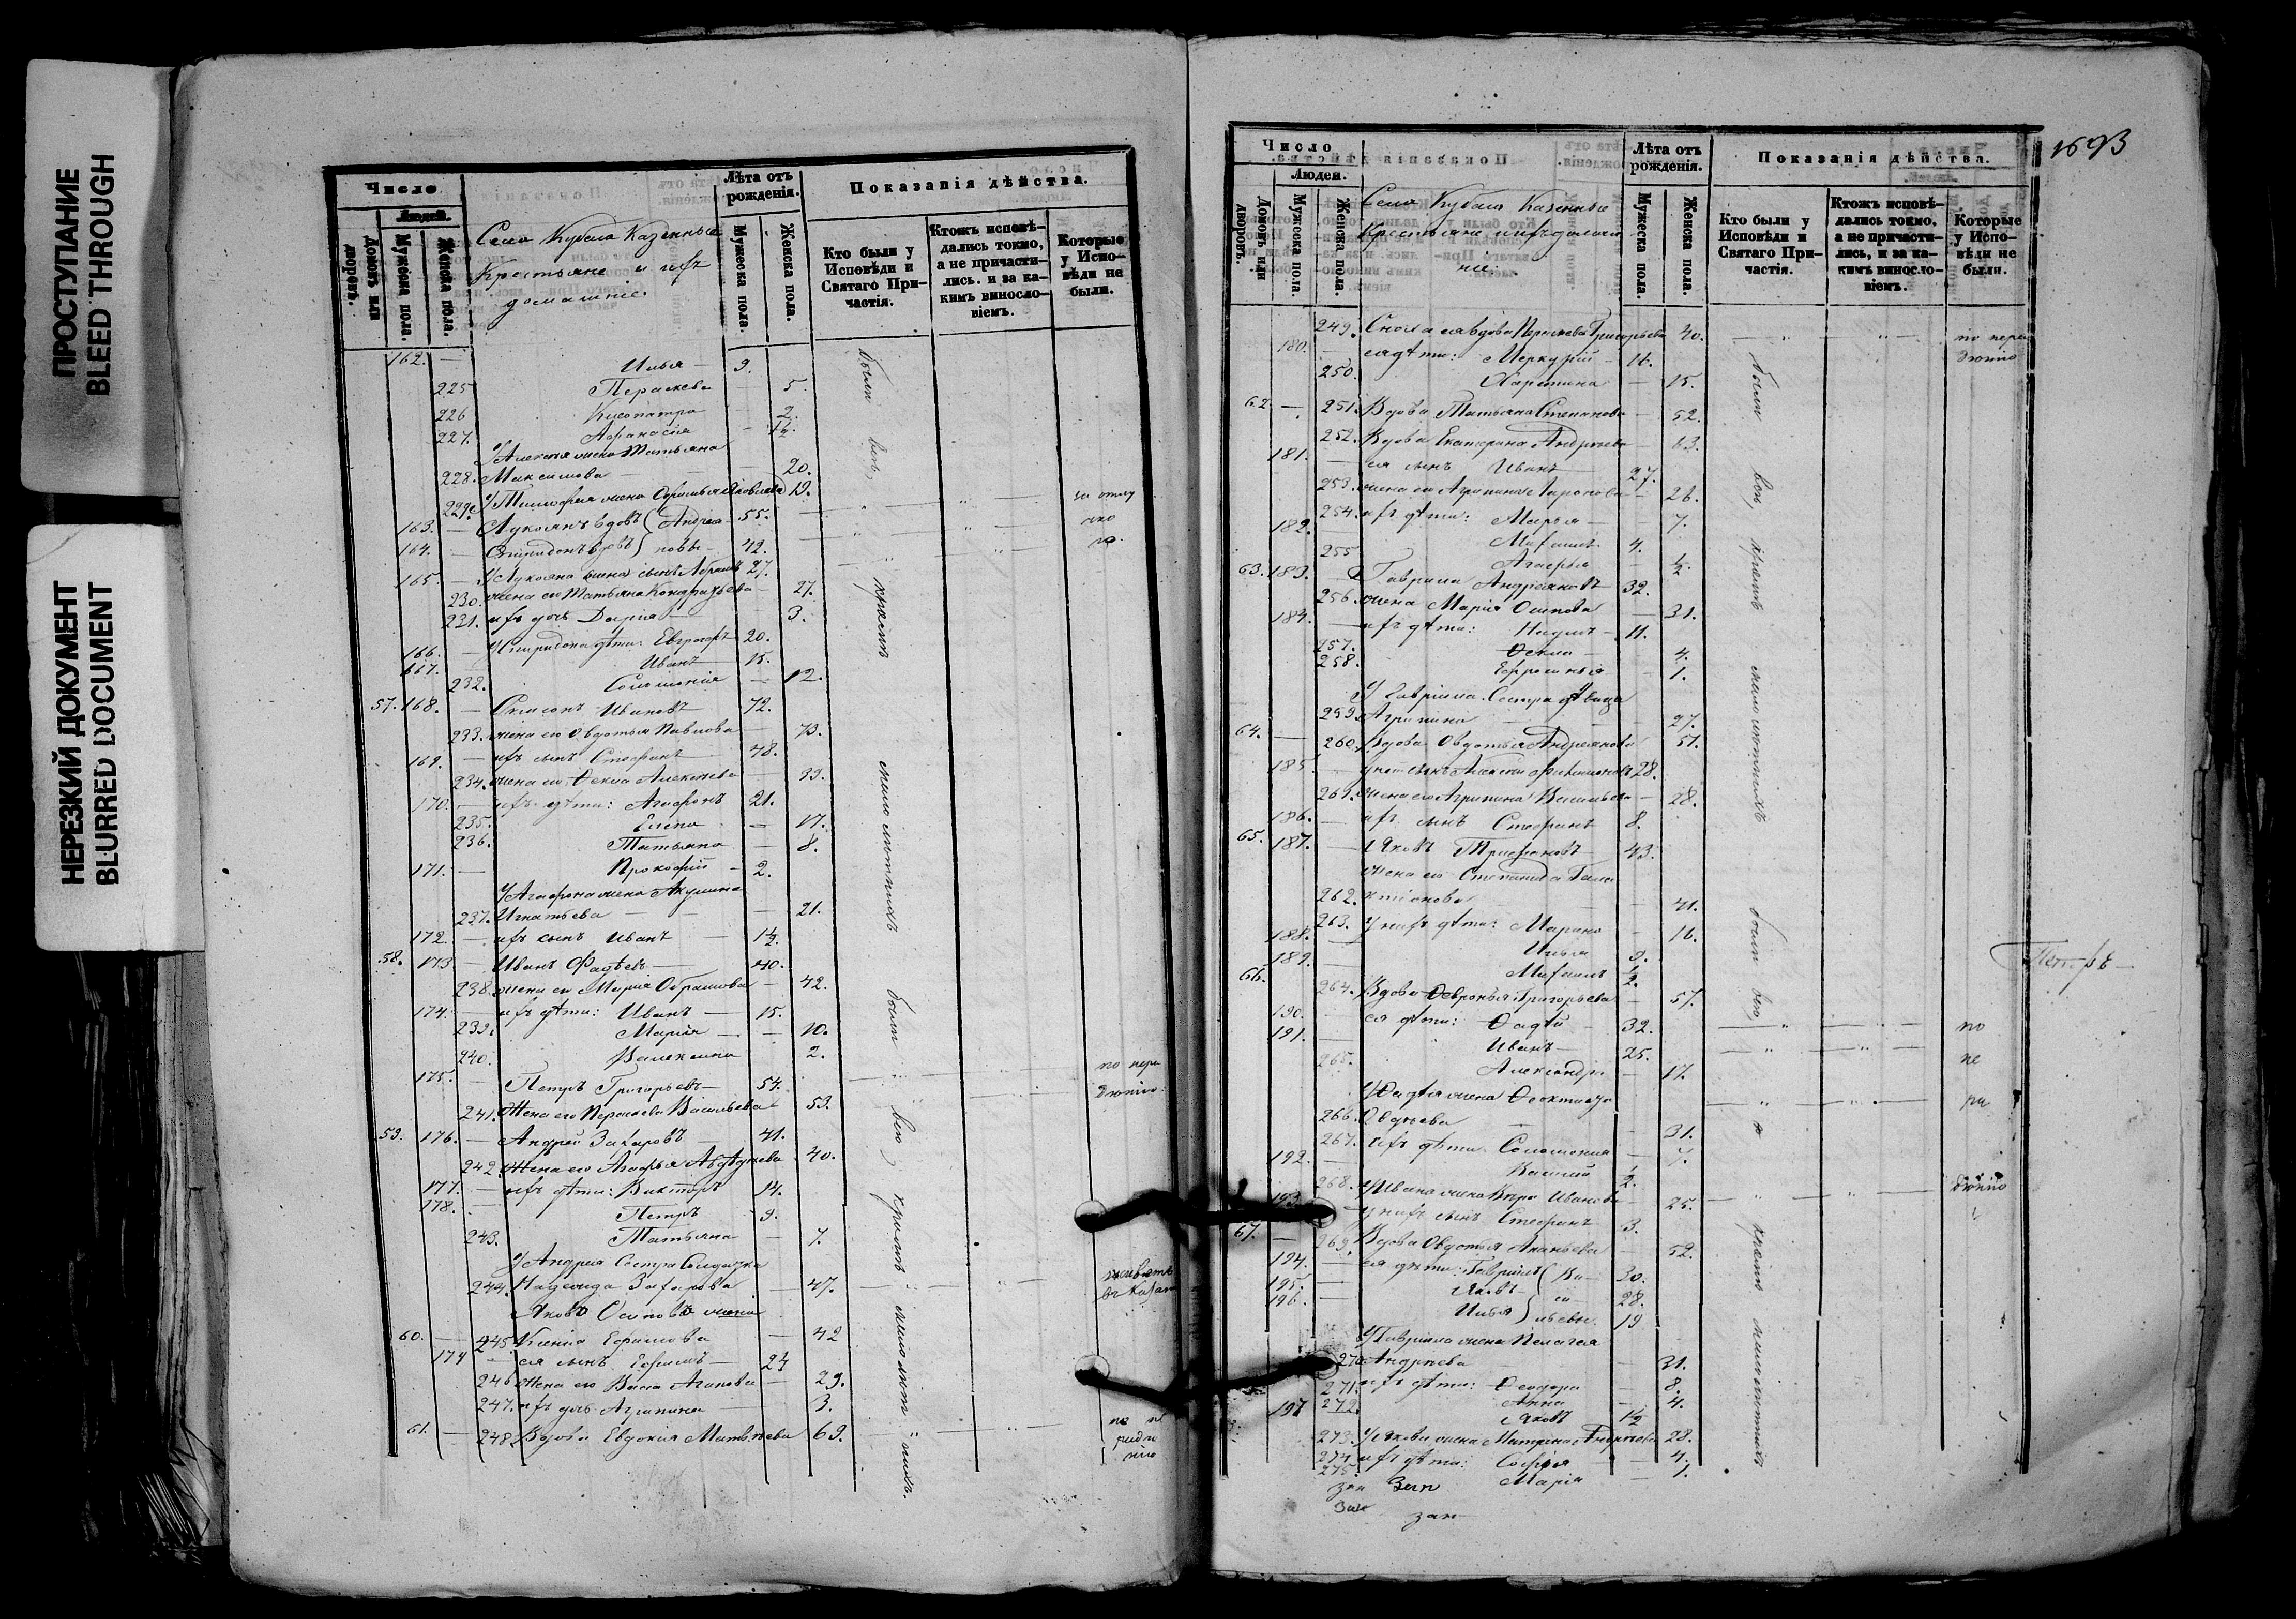 ПРОСТУПАНИЕ
BLEED THROUGH
НЕРЕЗКИЙ ДОКУМЕНТ
BLURRED DOCUMENT
Число
Людей.
Домовъ или дворовъ.
Мужеска пола.
Женска пола.
Село Кубела Казенные
Крестьяне и ихъ
домашніе.
Лѣта отъ рожденія.
Мужеска пола.
Женска пола.
Показанія дѣйства.
Кто были у Исповѣди и Святаго Причастія.
Ктожъ исповѣдались токмо, а не причастились. и за какимъ винословіемъ.
Которые у Исповѣди не были.
162. — Илья — 9.
225 Параскева — 5.
226 Клеопатра — 2.
227. Афанасія — 1½.
У Алексѣя жена Татьяна
228. Максимова — 20.
229. У Тимофея жена Яковлева 19.
163. — Лукоянъ вдовъ Андрея 55.
164. — Спиридонъ вдовъ новы 42.
165. — У Лукояна сынъ 27.
230. жена ево Татьяна Кондратьева — 27.
231. ихъ дочь Дарія — 3.
166. — У Спиридона дѣти: Евграфъ 20.
167. Иванъ — 15.
232. Соломонія — 12.
57. 168. — Симеонъ Ивановъ — 72.
233. жена ево Овдотья Павлова — 73.
169. — ихъ сынъ Стефанъ — 48.
234. жена ево Ѳекла Алексѣева — 39.
170. — ихъ дѣти: Агафонъ 21.
235. Елена — 17.
236. Татьяна — 8.
171. — Прокофій — 2.
У Агафона жена Акулина
237. Игнатьева — 21.
172. — ихъ сынъ Иванъ — 1½.
58. 173 — Иванъ Фадѣевъ — 40.
238. жена ево Марія Обрамова — 42.
174. — ихъ дѣти: Иванъ — 15.
239. Марія — 10.
240. 2.
175. — Петръ Григорьевъ — 54.
241. Жена его Параскева Васильева 53.
59. 176. — Андрей Захаровъ 41.
242. Жена его Агафья 40.
177. — ихъ дѣти: Викторъ 14.
178. Петръ 9.
243. Татьяна — 7.
У Андрея Сестра Солдатка
244. Надежда Захарова — 47.
живетъ
въ Казани
Яковъ Осиповъ жена
60. — 245 Ксенія Ефимова — 42
179 — ея сынъ Ефимъ — 24
246 Жена его Васса Агапова — 29.
247. ихъ дочь Агрипина — 3.
61. — 248 Вдова Евдокія Матвѣева 69.
по не
радѣ
нію
1693
Число
Людей.
Домовъ или дворовъ.
Мужеска пола.
Женска пола.
Село Кубела Казенные
Крестьяне и ихъ домаш
ніе.
Лѣта отъ рожденія.
Мужеска пола.
Женска пола.
Показанія дѣйства.
Кто были у Исповѣди и Святаго Причастія.
Ктожъ исповѣдались токмо, а не причастились, и за какимъ винословіемъ.
Которые у Исповѣди не были.
249. вдова Параскева Григорьева 40.
по нера
дѣнію
180. — ея дѣти: Меркурій — 16.
250. Харитина — 15.
62. — 251. Вдова Татьяна Степанова — 52.
252. Вдова Екатерина Андреева — 63.
181. — ея сынъ Иванъ — 27.
253. жена ево Агрипина — 26.
254. ихъ дѣти: Марья — 7.
182. Михаилъ 4.
255 Агафья — ½.
63. 183. — Гаврила Андреяновъ 32.
256. жена Марія Осипова — 31.
184. — ихъ дѣти: 11.
257. Ѳекла — 4.
258. Ефросинья — 1.
У Гавріила Сестра дѣвица
259. Агрипина — 27.
64. — 260. Вдова Овдотья Андреянова 51.
185. у ней сынъ Алексѣй 28.
261. жена его Агрипина Васильева — 28.
186. — ихъ сынъ Стефанъ 8.
65. 187. — Яковъ Трифоновъ — 43.
жена его Степанида Гала
262. ктіонова — 41.
263. У нихъ дѣти: Марина — 16.
188. Илья 9.
189. Михаилъ ½.
66. 264. Вдова Ѳевронья Григорьева — 57.
190. — ея дѣти: Ѳадѣй — 32.
191. Иванъ — 25.
265. Александра — 17.
по
не
ра
дѣнію
Петръ
У Ѳадѣя жена Ѳеоктиста
266. Овдѣева — 31.
267. ихъ дѣти Соломонія — 7.
192. Василій ½.
268. У Ивана жена Вѣра Иванова — 25.
193. — У нихъ сынъ Стефанъ 3.
67. — 269. Вдова Овдотья Ананьева — 52.
194. — ея дѣти: Гавріилъ Ва 30.
195. — Яковъ си 28.
196. — Илья льевы 19
У Гавріила жена Пелагея
270 Андреева — 31.
271. ихъ дѣти: Ѳеодора — 8.
272. Анна — 4.
197 Яковъ 1½
273. У Якова жена Матрена Андреева 28.
274. ихъ дѣти: Софья — 4.
275. Марія — 1.
зап